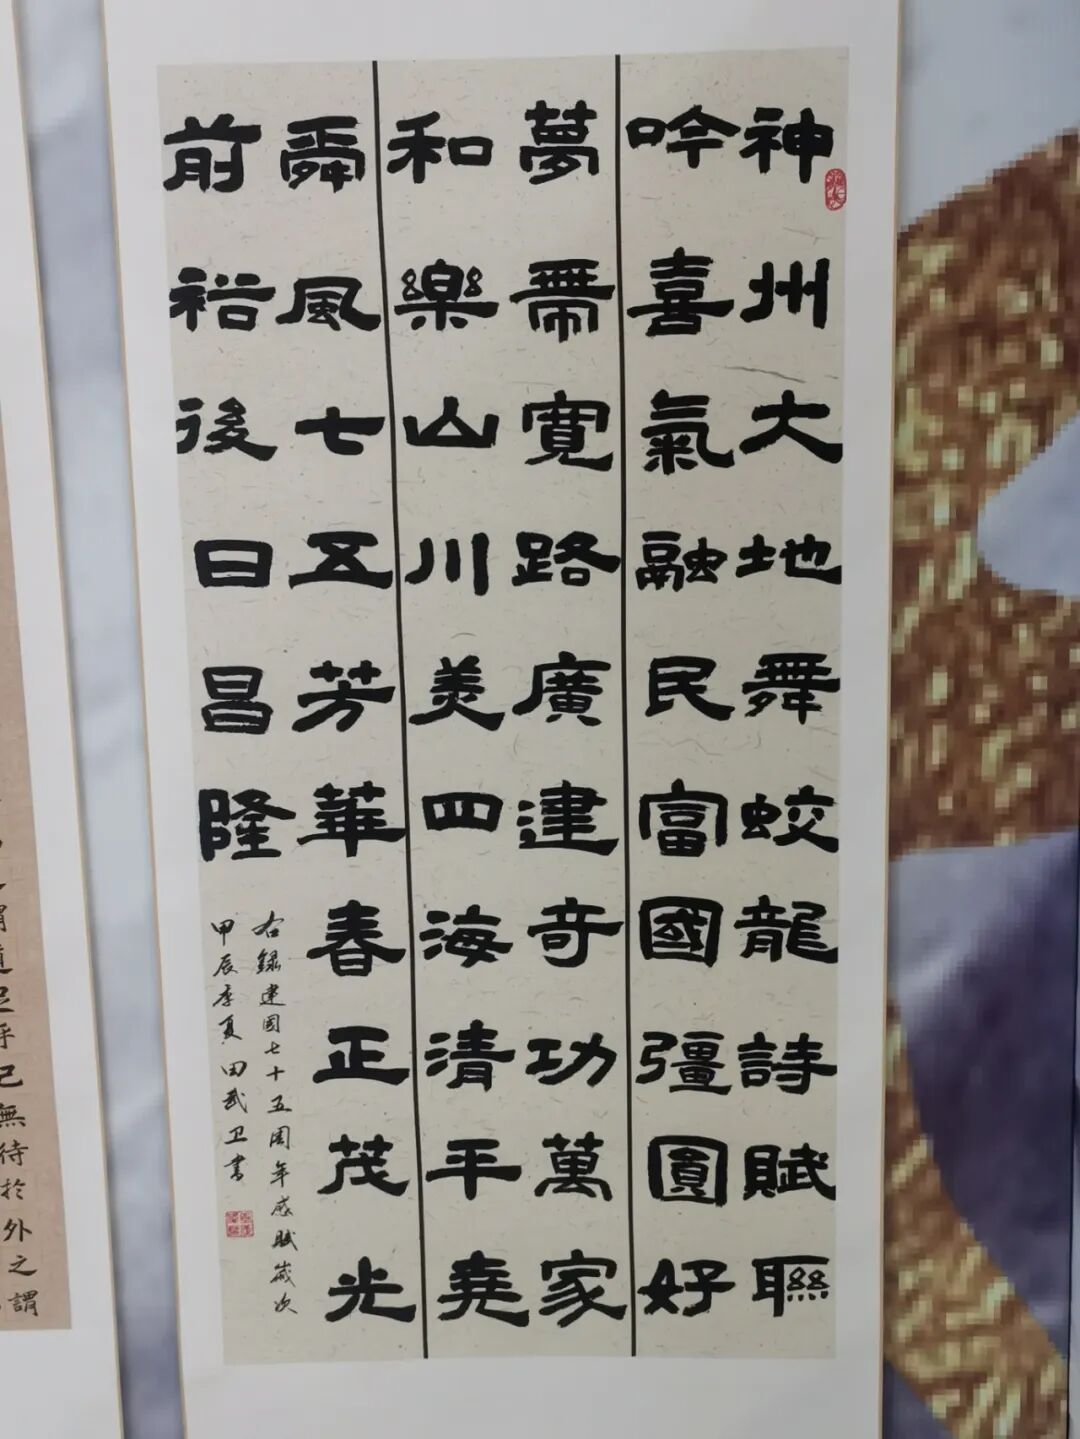 神州大地舞蛟龍詩賦聯
吟喜氣融民富國彊圓好
夢帶寬路廣建奇功萬家
和樂山川美四海清平堯
舜風七五芳華春正茂光
前裕後日昌隆
右録建國七十五周年感賦歲次
甲辰季夏田武卫書
謂道足乎己無待於外之謂